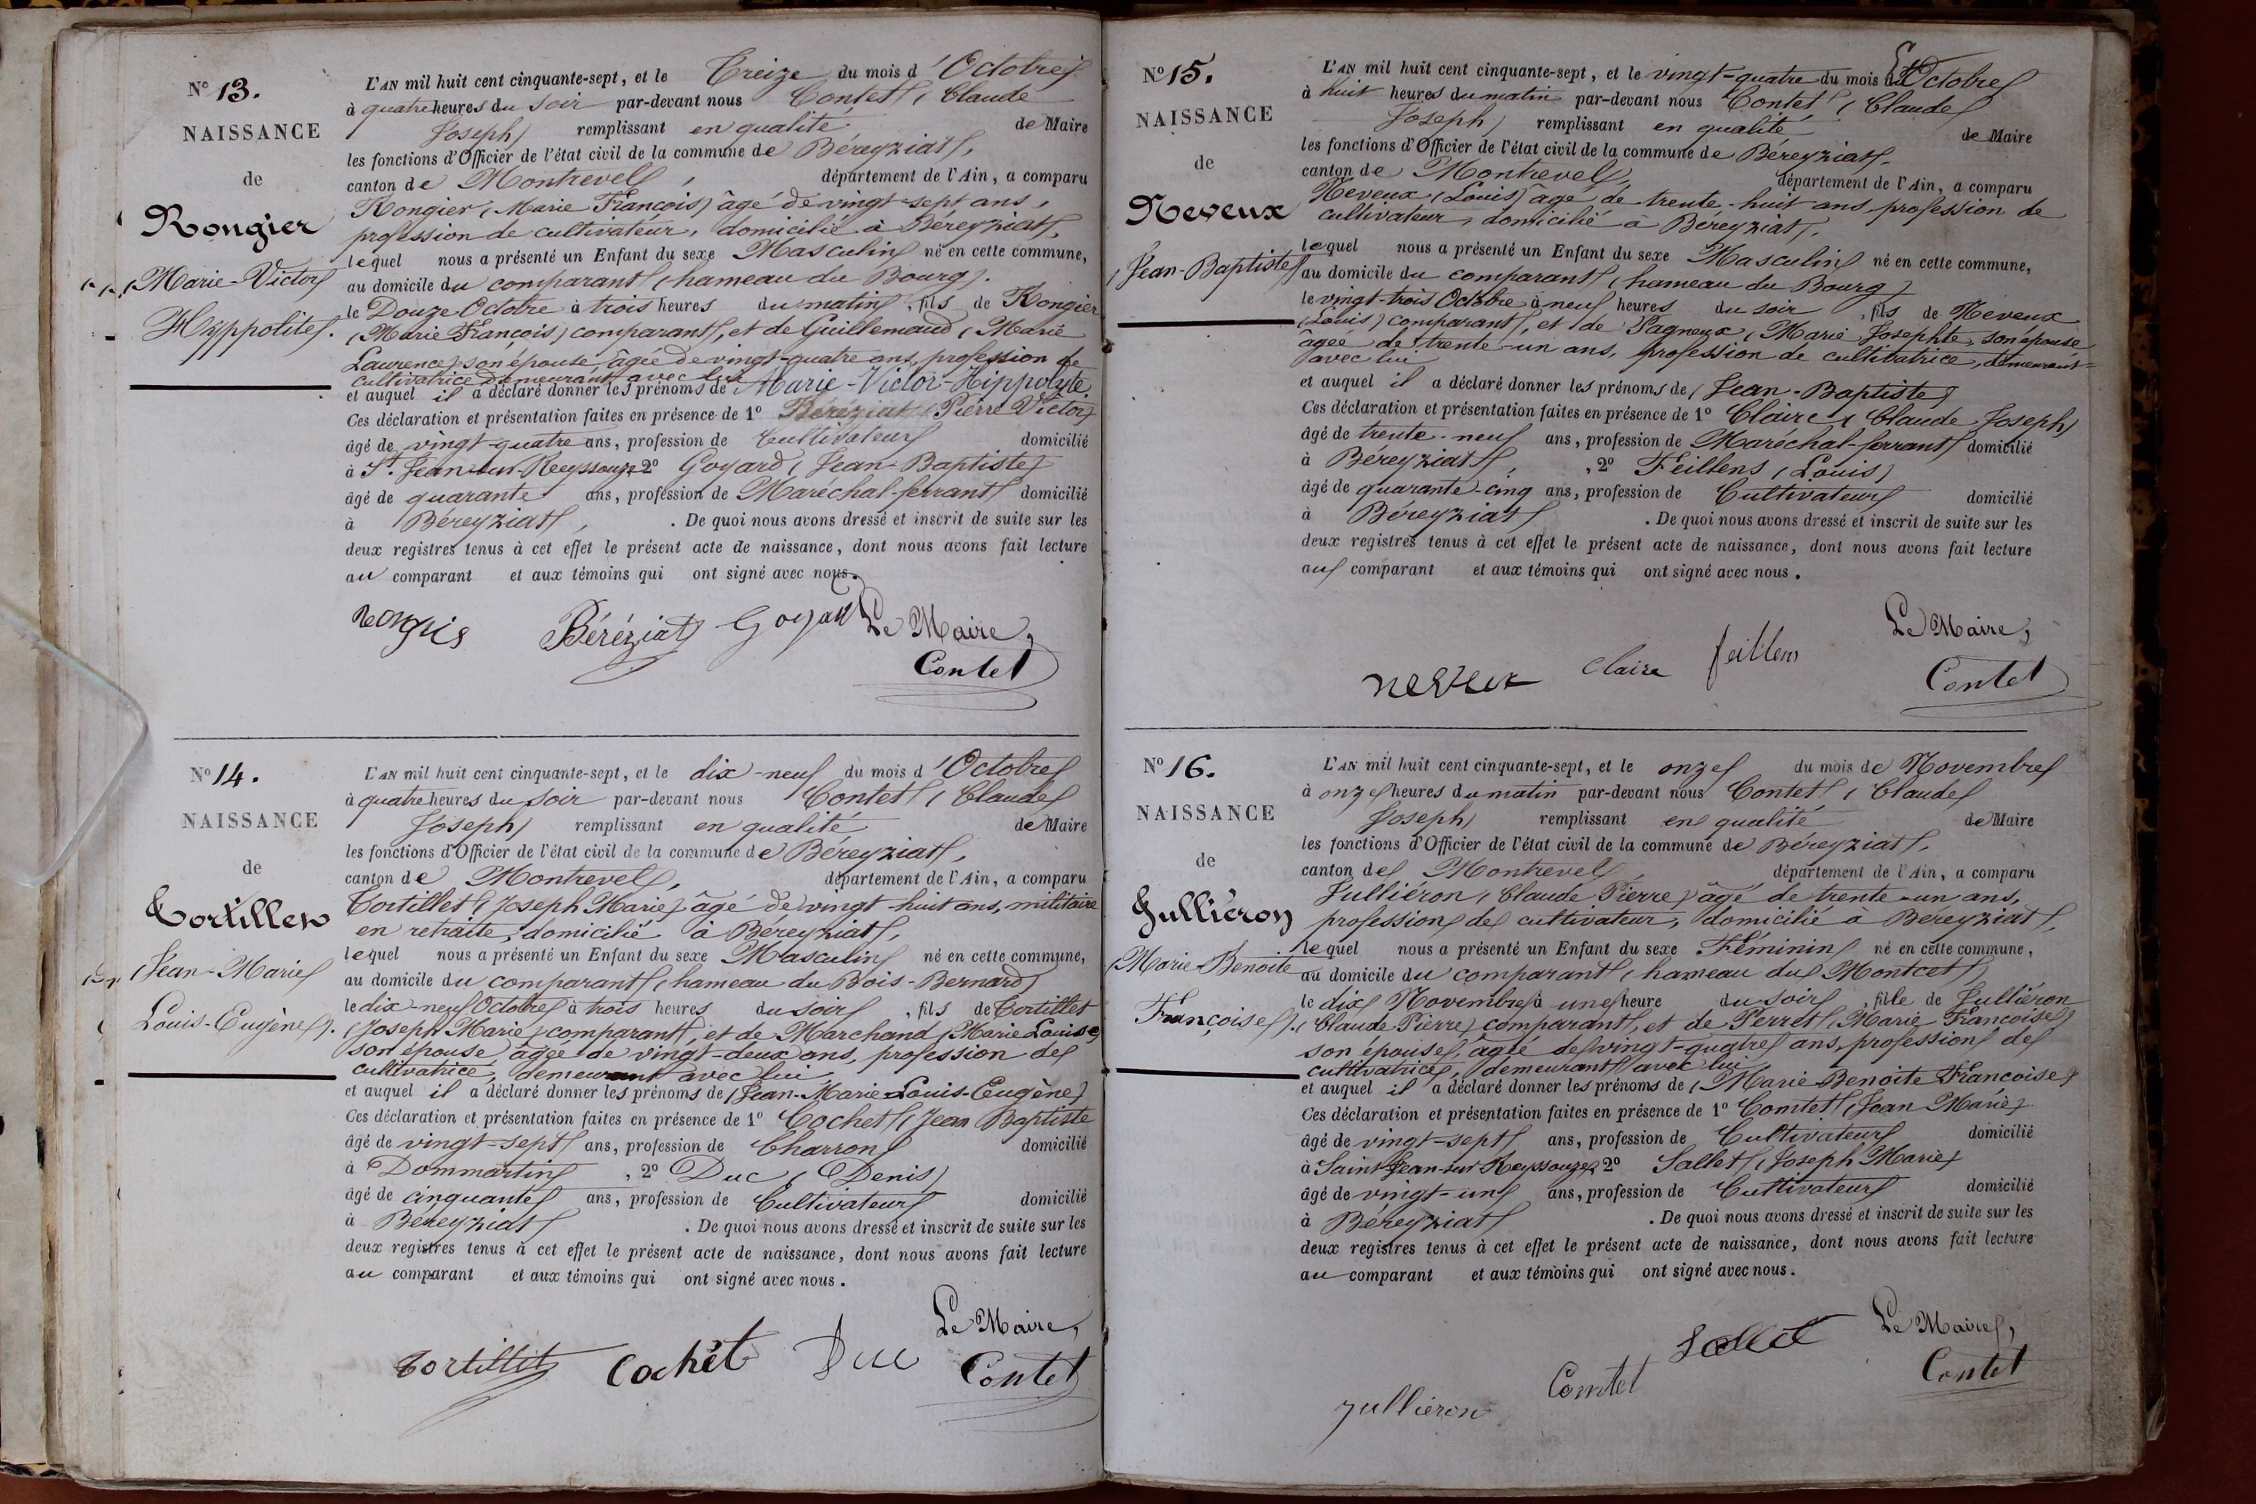 N° 13.
NAISSANCE
de
Rongier
(Marie-Victor
Hippolite).
L'AN mil huit cent cinquante-sept, et le Treize du mois d'Octobre
à quatre heures du soir par-devant nous Contet (Claude
Joseph) remplissant en qualité de Maire
les fonctions d'Officier de l'état civil de la commune de Béreyziat,
canton de Montrevel, département de l'Ain, a comparu
Rongier (Marie François) âgé de vingt-sept ans,
profession de cultivateur, domicilié à Béreyziat,
lequel nous a présenté un Enfant du sexe Masculin né en cette commune,
au domicile du comparant (hameau du Bourg).
le Douze Octobre à trois heures du matin, fils de Rongier
(Marie François) comparant, et de Guillemaud (Marie
Laurence) son épouse, âgée de vingt-quatre ans, profession de
cultivatrice demeurant avec lui
et auquel il a déclaré donner les prénoms de Marie-Victor-Hippolyte
Ces déclaration et présentation faites en présence de 1° Béréziat (Pierre Victor)
âgé de vingt-quatre ans, profession de Cultivateur domicilié
à St. Jean-sur-Reyssouze, 2° Goyard (Jean-Baptiste)
âgé de quarante ans, profession de Maréchal-ferrant domicilié
à Béreyziat, . De quoi nous avons dressé et inscrit de suite sur les
deux registres tenus à cet effet le présent acte de naissance, dont nous avons fait lecture
au comparant et aux témoins qui ont signé avec nous.
Béréziat Goyard Le Maire,
Contet
N° 14.
NAISSANCE
de
Tortillet
(Jean-Marie
Louis-Eugène).
L'AN mil huit cent cinquante-sept, et le dix-neuf du mois d'Octobre
à quatre heures du soir par-devant nous Contet (Claude
Joseph) remplissant en qualité de Maire
les fonctions d'Officier de l'état civil de la commune de Béreyziat,
canton de Montrevel, département de l'Ain, a comparu
Tortillet (Joseph Marie) âgé de vingt huit ans, militaire
en retraite, domicilié à Béreyziat,
lequel nous a présenté un Enfant du sexe Masculin né en cette commune,
au domicile du comparant (hameau du Bois-Bernard)
le dix-neuf Octobre à trois heures du soir, fils de Tortillet
(Joseph Marie) comparant, et de Marchand (Marie Louise)
son épouse, âgée de vingt-deux ans, profession de
cultivatrice, demeurant avec lui
et auquel il a déclaré donner les prénoms de (Jean-Marie-Louis-Eugène)
Ces déclaration et présentation faites en présence de 1° Cochet (Jean Baptiste
âgé de vingt-sept ans, profession de Charron domicilié
à Dommartin, 2° Duc (Denis)
âgé de cinquante ans, profession de Cultivateur domicilié
à Béreyziat . De quoi nous avons dressé et inscrit de suite sur les
deux registres tenus à cet effet le présent acte de naissance, dont nous avons fait lecture
au comparant et aux témoins qui ont signé avec nous.
Le Maire,
Tortillet Cochet Duc Contet
N° 15.
NAISSANCE
de
Neveux
(Jean-Baptiste)
L'AN mil huit cent cinquante-sept, et le vingt-quatre du mois d'Octobre
à huit heures du matin par-devant nous Contet (Claude
Joseph) remplissant en qualité de Maire
les fonctions d'Officier de l'état civil de la commune de Béreyziat,
canton de Montrevel, département de l'Ain, a comparu
Neveux (Louis) âgé de trente-huit ans profession de
cultivateur, domicilié à Béreyziat,
lequel nous a présenté un Enfant du sexe Masculin né en cette commune,
au domicile du comparant (hameau du Bourg)
le vingt-trois Octobre à neuf heures du soir, fils de Neveux
(Louis) comparant, et de Pagneux (Marie Josephte) son épouse
âgée de trente-un ans, profession de cultivatrice, demeurant
avec lui
et auquel il a déclaré donner les prénoms de (Jean-Baptiste)
Ces déclaration et présentation faites en présence de 1° Claire (Claude Joseph)
âgé de trente-neuf ans, profession de Maréchal-ferrant domicilié
à Béreyziat, , 2° Feillens (Louis)
âgé de quarante-cinq ans, profession de Cultivateur domicilié
à Béreyziat . De quoi nous avons dressé et inscrit de suite sur les
deux registres tenus à cet effet le présent acte de naissance, dont nous avons fait lecture
au comparant et aux témoins qui ont signé avec nous.
Le Maire,
neveux Claire feillens Contet
N° 16.
NAISSANCE
de
Julliéron
(Marie-Benoite
Françoise).
L'AN mil huit cent cinquante-sept, et le onze du mois de Novembre
à onze heures du matin par-devant nous Contet (Claude
Joseph) remplissant en qualité de Maire
les fonctions d'Officier de l'état civil de la commune de Béreyziat,
canton de Montrevel, département de l'Ain, a comparu
Julliéron (Claude Pierre) âgé de trente-un ans,
profession de cultivateur, domicilié à Béreyziat,
lequel nous a présenté un Enfant du sexe Féminin né en cette commune,
au domicile du comparant (hameau du Montcet)
le dix Novembre à une heure du soir, fille de Julliéron
(Claude Pierre) comparant, et de Perret (Marie Françoise)
son épouse, âgée de vingt-quatre ans, profession de
cultivatrice, demeurant avec lui
et auquel il a déclaré donner les prénoms de (Marie Benoite Françoise)
Ces déclaration et présentation faites en présence de 1° Comtet (Jean Marie)
âgé de vingt-sept ans, profession de Cultivateur domicilié
à Saint Jean-sur Reyssouze, 2° Sallet (Joseph Marie)
âgé de vingt-un ans, profession de Cultivateur domicilié
à Béreyziat . De quoi nous avons dressé et inscrit de suite sur les
deux registres tenus à cet effet le présent acte de naissance, dont nous avons fait lecture
au comparant et aux témoins qui ont signé avec nous.
Le Maire,
Julliéron Comtet Sallet Contet